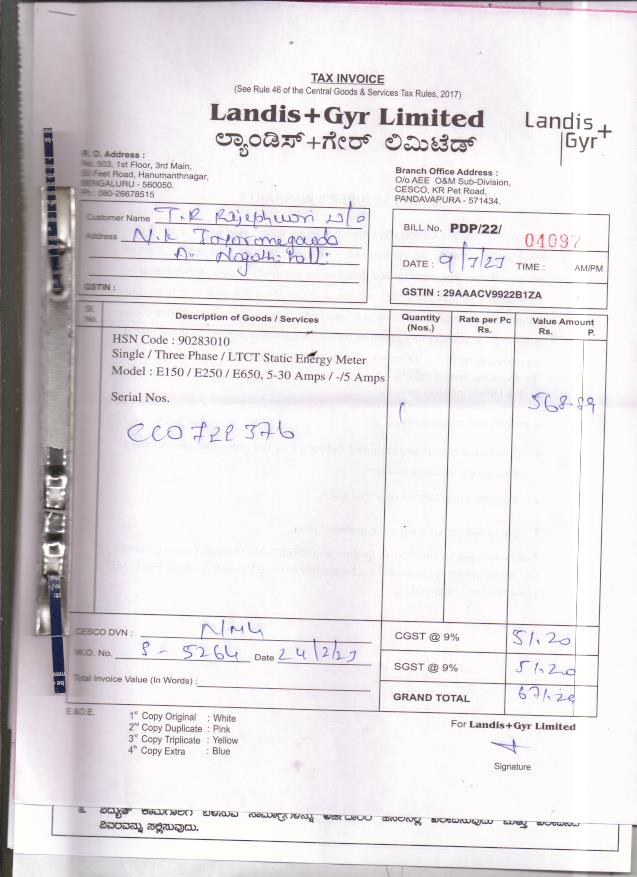 TAX INVOICE
(See Rule 46 of the Central Goods & Services Tax Rules, 2017)
Landis+Gyr Limited
ಲ್ಯಾಂಡಿಸ್+ಗೇರ್ ಲಿಮಿಟೆಡ್
Landis+
Gyr
R. O. Address :
No. 503, 1st Floor, 3rd Main,
Feet Road, Hanumanthnagar,
BENGALURU - 560050.
Ph.: 080-26678515
Branch Office Address :
O/o AEE O&M Sub-Division,
CESCO, KR Pet Road,
PANDAVAPURA - 571434.
Customer Name T.R w/o
Address N.K
A.
GSTIN :
BILL No. PDP/22/ 04097
DATE : 9/7/23 TIME : AM/PM
GSTIN : 29AAACV9922B1ZA
Sl. No. Description of Goods / Services Quantity (Nos.) Rate per Pc Rs. Value Amount Rs. P.
HSN Code : 90283010
Single / Three Phase / LTCT Static Energy Meter
Model : E150 / E250 / E650, 5-30 Amps / -/5 Amps
Serial Nos. 1 568-89
CC0722376
CESCO DVN : NML
W.O. No. S-5264 Date 24/2/23
Total Invoice Value (In Words) :
CGST @ 9% 51.20
SGST @ 9% 51.20
GRAND TOTAL 671.29
E.& O.E.
1st Copy Original : White
2nd Copy Duplicate : Pink
3rd Copy Triplicate : Yellow
4th Copy Extra : Blue
For Landis+Gyr Limited
Signature
ವಿವರವನ್ನು ಸಲ್ಲಿಸುವುದು.